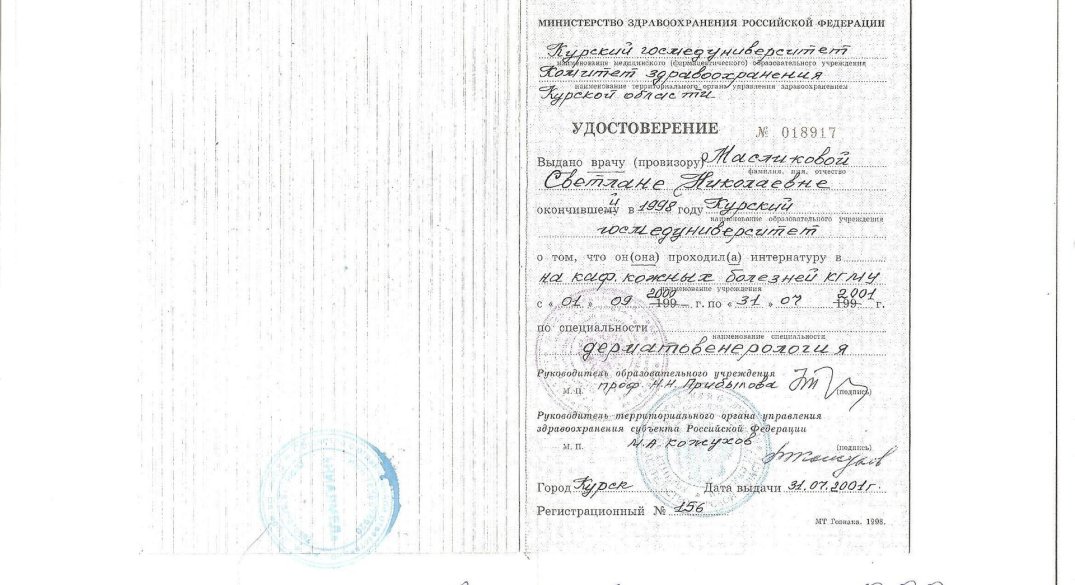 МИНИСТЕРСТВО ЗДРАВООХРАНЕНИЯ РОССИЙСКОЙ ФЕДЕРАЦИИ
Курский госмедуниверситет
наименование медицинского (фармацевтического) образовательного учреждения
Комитет здравоохранения
наименование территориального органа управления здравоохранением
Курской области
УДОСТОВЕРЕНИЕ № 018917
Выдано врачу (провизору) Масликовой
фамилия, имя, отчество
Светлане Николаевне
окончившему й в 1998 году Курский
наименование образовательного учреждения
госмедуниверситет
о том, что он(она) проходил(а) интернатуру в
на каф. кожных болезней КГМУ
наименование учреждения
с « 01 » 09 2000 199 г. по « 31 » 07 2001 199 г.
по специальности
наименование специальности
дерматовенерология
Руководитель образовательного учреждения
М. П. проф. Н.Н. Прибылова (подпись)
Руководитель территориального органа управления
здравоохранения субъекта Российской Федерации
М. П. М.А. Кожухов (подпись)
Город Курск Дата выдачи 31.07.2001г.
Регистрационный № 156
МТ Гознака. 1998.